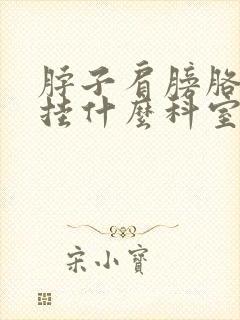 脖子肩膀胳
挂什麼科室
宋小寶